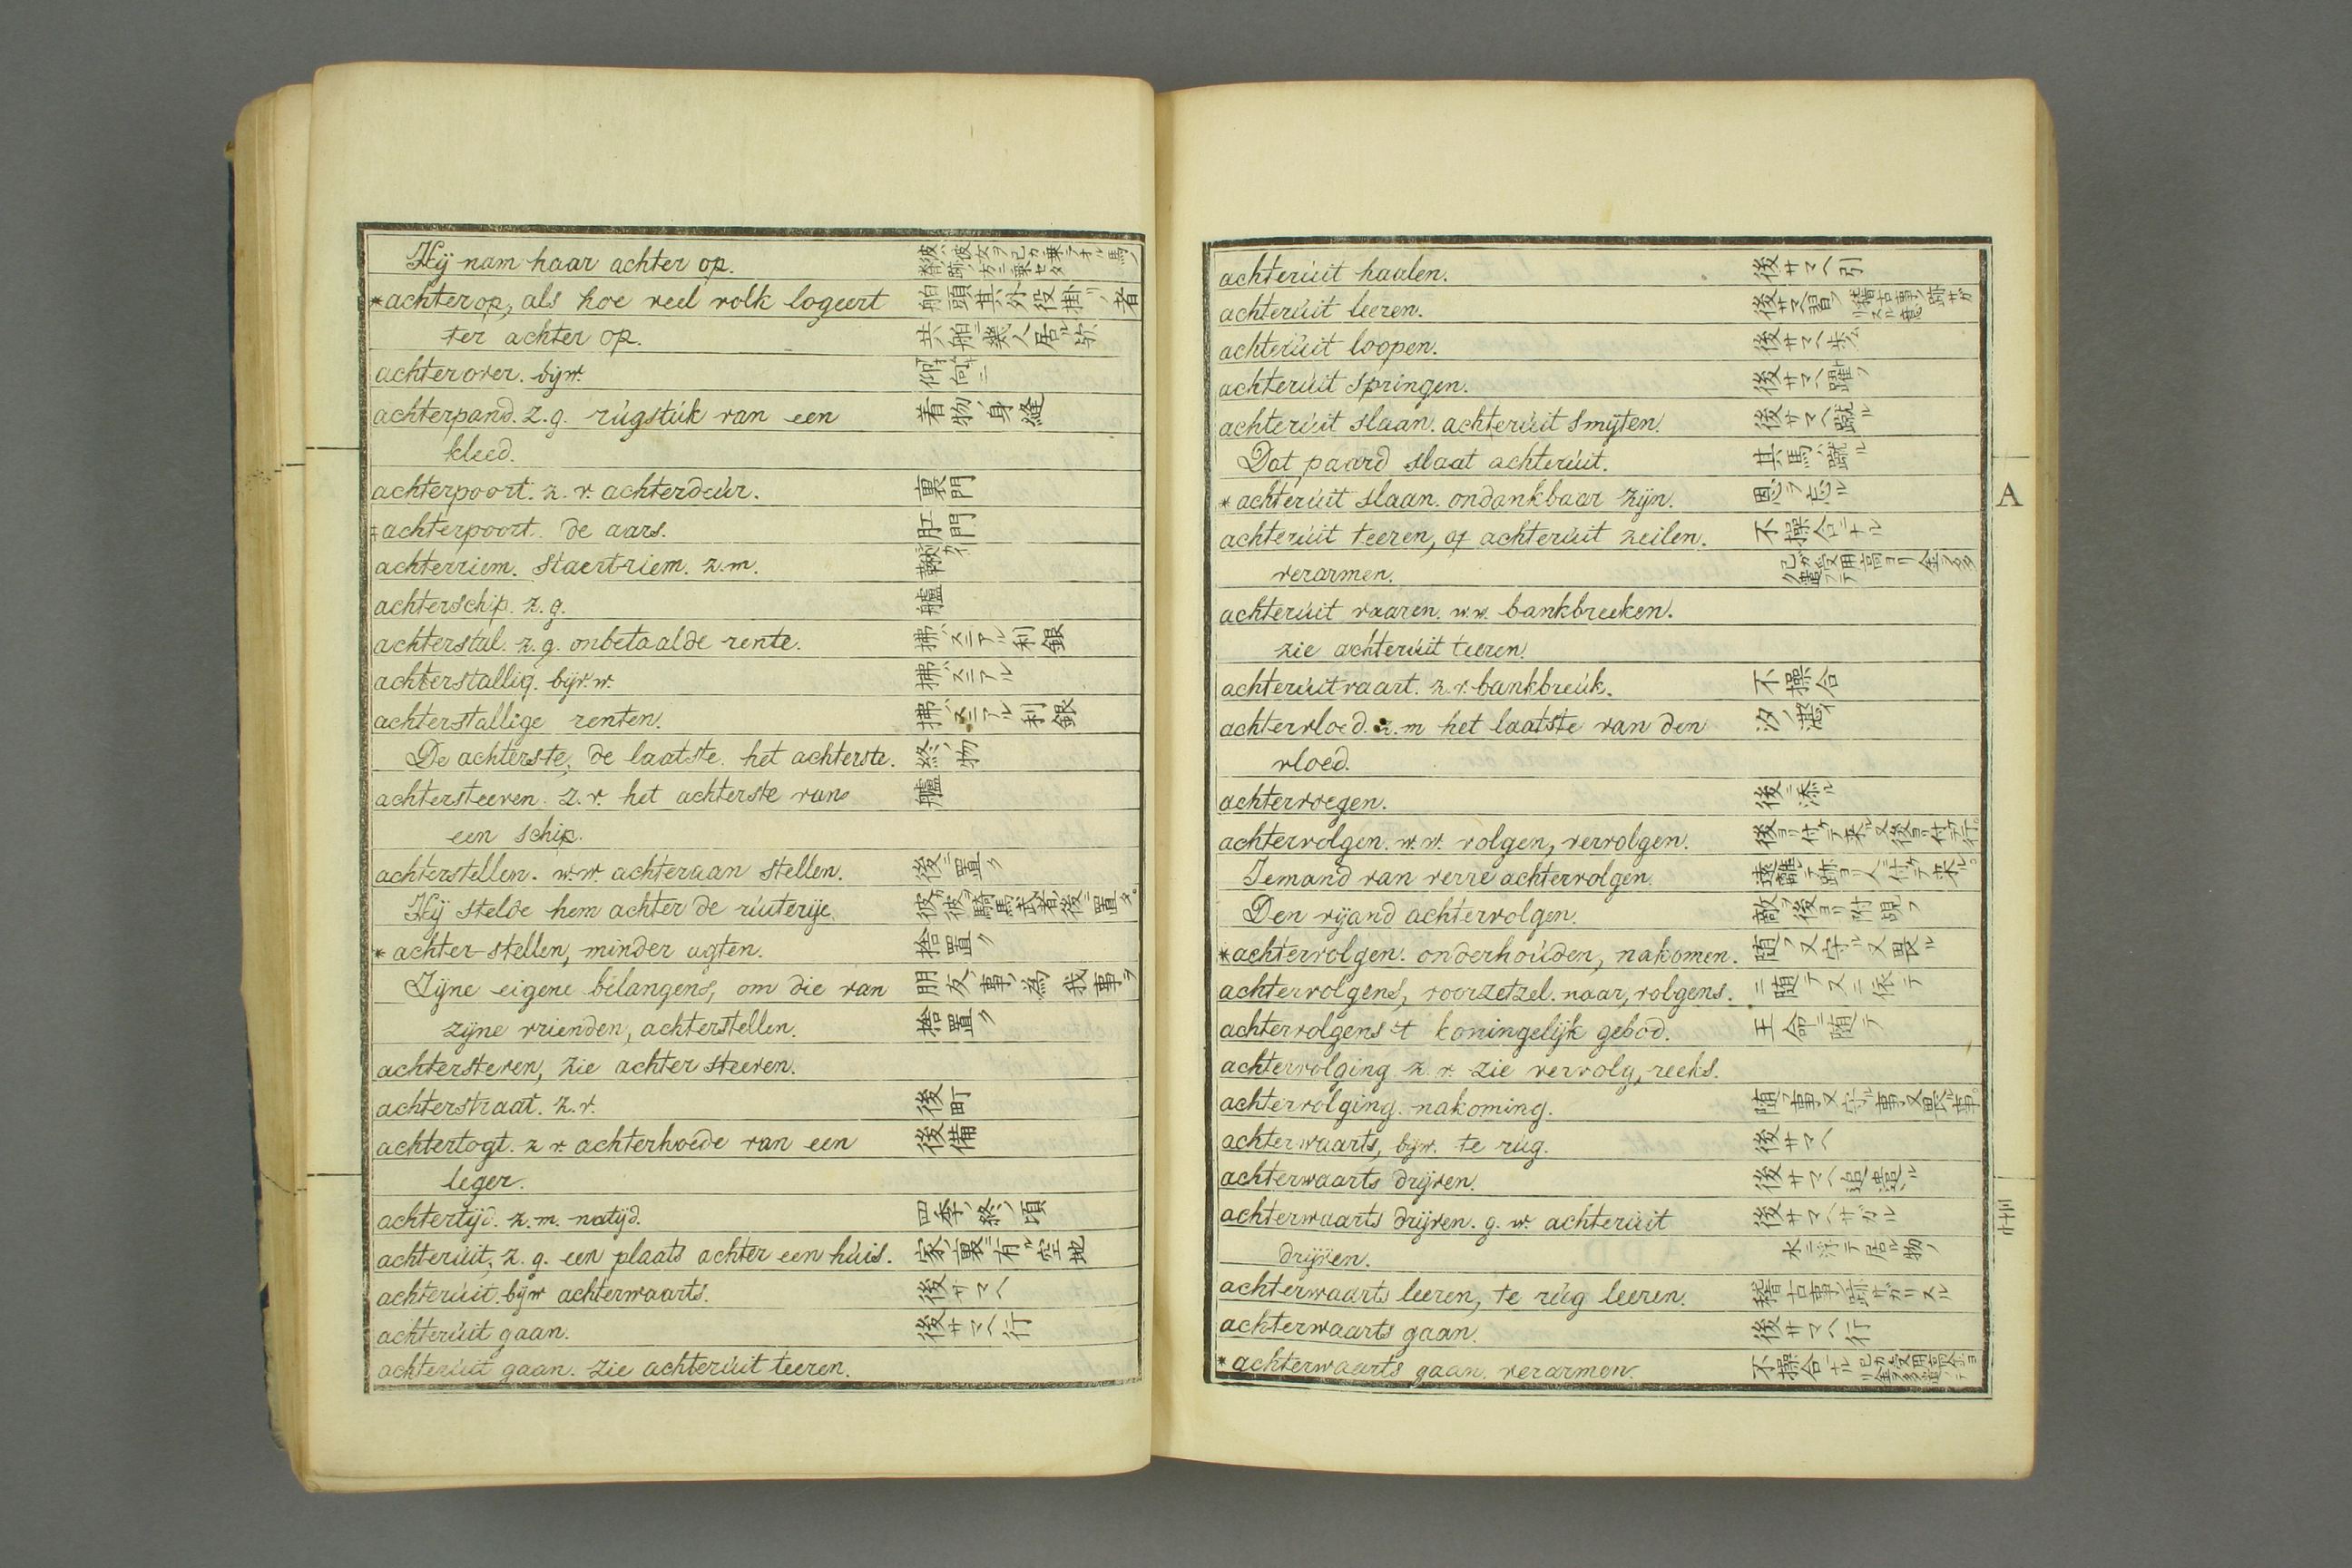 Hij nam haar achter op. 彼ハ彼女ヲ己カ乗テオル馬ノ
*achter op, als hoe veel volk logeert 船頭其外役掛リノ者
ter achter op. 共ノ船ニ幾人居ル歟
achterover. bijw. 仰向ニ
achterpand. z.g. rúgstúk van een 着物ノ身縫
kleed.
achterpoort. z.v. achterdeúr. 裏門
achterpoort. de aars. 肛門
achterriem. staert-riem. z.m. 鞦
achterschip. z.g. 艫
achterstal. z.g. onbetaalde rente. 拂ハズニアル利銀
achterstallig. bijv.w. 拂ハズニアル
achterstallige renten. 拂ハズニアル利銀
De achterste, de laatste. het achterste. 終ノ物
achtersteeven. z.v. het achterste van 艫
een schip.
achterstellen. w.w. achteraan stellen. 後ニ置ク
Hij stelde hem achter de rúiterije. 彼カ彼ヲ騎馬武者ノ後ニ置タ。
*achter-stellen, minder agten. 捨置ク
Zijne eigene belangens, om die van 朋友ノ事ノ為ニ我事ヲ
zijne vrienden, achterstellen. 捨置ク
achtersteven, zie achter steeven.
achterstraat. z.v. 後町
achtertogt. z.v. achterhoede van een 後備
leger.
achtertijd. z.m. natijd. 四季ノ終ノ頃
achterúit, z.g. een plaats achter een húis. 家ノ裏ニ有ル空地
achterúit. bijw achterwaarts. 後サマヘ
achterúit gaan. 後サマヘ行
achterúit gaan. zie achterúit teeren.
achterúit haalen. 後サマヘ引
achterúit leeren. 後サマヘ習フ 稽古事ノ跡サガリスル意
achterúit loopen. 後サマヘ歩ム
achterúit springen. 後サマヘ躍フ
achterúit slaan. achterúit smijten. 後サマヘ蹴ル
Dat paard slaat achterúit. 其馬ハ蹴ル
*achterúit slaan. ondankbaar zijn. 恩ヲ忘ル
achterúit teeren, of achterúit zeilen. 不操合ニナル
verarmen. 己カ受用高ヨリ金ヲ多ク費ヤシテ
achterúit vaaren. w.w. bankbreeken.
zie achterúit teeren.
achterúitvaart. z.v. bankbreúk. 不操合
achtervloed. z.m het laatste van den 汐ノ湛イ
vloed.
achtervoegen. 後ニ添ル
achtervolgen. w.w. volgen, vervolgen. 後ヨリ付テ来ル又後ヨリ付テ行。
Iemand van verre achtervolgen. 遠ク離レテ跡ヨリ人ニ付テ来ル。
Den vijand achtervolgen. 敵ヲ後ヨリ附覘フ
*achtervolgen. onderhoúden, nakomen. 随フ又守ル又畏ル
achtervolgens, voorzetzel. naar, volgens. ニ随テ又ニ依テ
achtervolgens 't koningelijk gebod. 王命ニ随テ
achtervolging z.v. zie vervolg, reeks.
achtervolging. nakoming. 随フ事又守ル事又畏ル事。
achterwaarts, bijw. te rúg. 後サマヘ
achterwaarts drijven. 後サマヘ追遣ル
achterwaarts drijven. g.w. achterúit 後サマヘサガル
drijven. 水ニ浮テ居ル物ノ
achterwaarts leeren, te rúg leeren. 稽古事ノ跡サガリスル
achterwaarts gaan. 後サマヘ行
*achterwaarts gaan. verarmen. 不操合ニナル
A